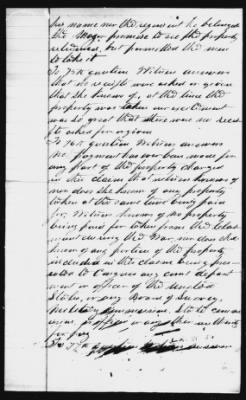 his name nor the regiment he belonged
the
promise to use the property
but permitted the men
to take it
To 73d question Witness answers
that no receipt was asked or given
that she knows of, at the time the
property was taken our excitement
was so great that there was no receipt
asked for or given
To 74th question Witness answers
No payment has ever been made for
any part of the property charged
in this claim that witness knows of
nor does she know of any property
taken at the same time being paid
for, Witness knows of no property
being paid for taken from the claim
ant during the War, nor does she
know of any portion of the property
included in this claim being presen
ted to Congress any court depart
ment or officer of the United
States, or any Board of Survey,
Military Commission, State com
or any other authority
for pay
To